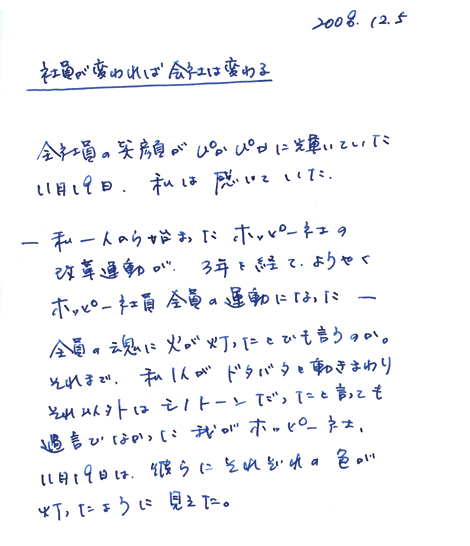 2008.12.5
社員が変われば会社は変わる
全社員の笑顔がぴかぴかに輝いていた
11月19日、私は感じていた。
— 私一人から始まったホッピー社の
改革運動が、3年を経て、ようやく
ホッピー社員全員の運動になった —
全員の魂に火が灯ったとでも言うのか。
それまで、私1人がドタバタと動きまわり
それ以外はモノトーンだったと言っても
過言でなかった我がホッピー社、
11月19日は、彼らにそれぞれの色が
灯ったように見えた。